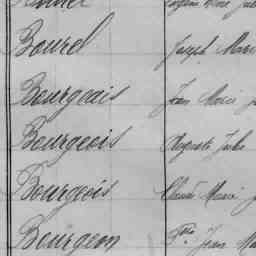 Bourel Joseph Marie
Bourgeais Jean Marie
Bourgeois Auguste Jules
Bourgeois Claude Marie
Bourgeon Jean